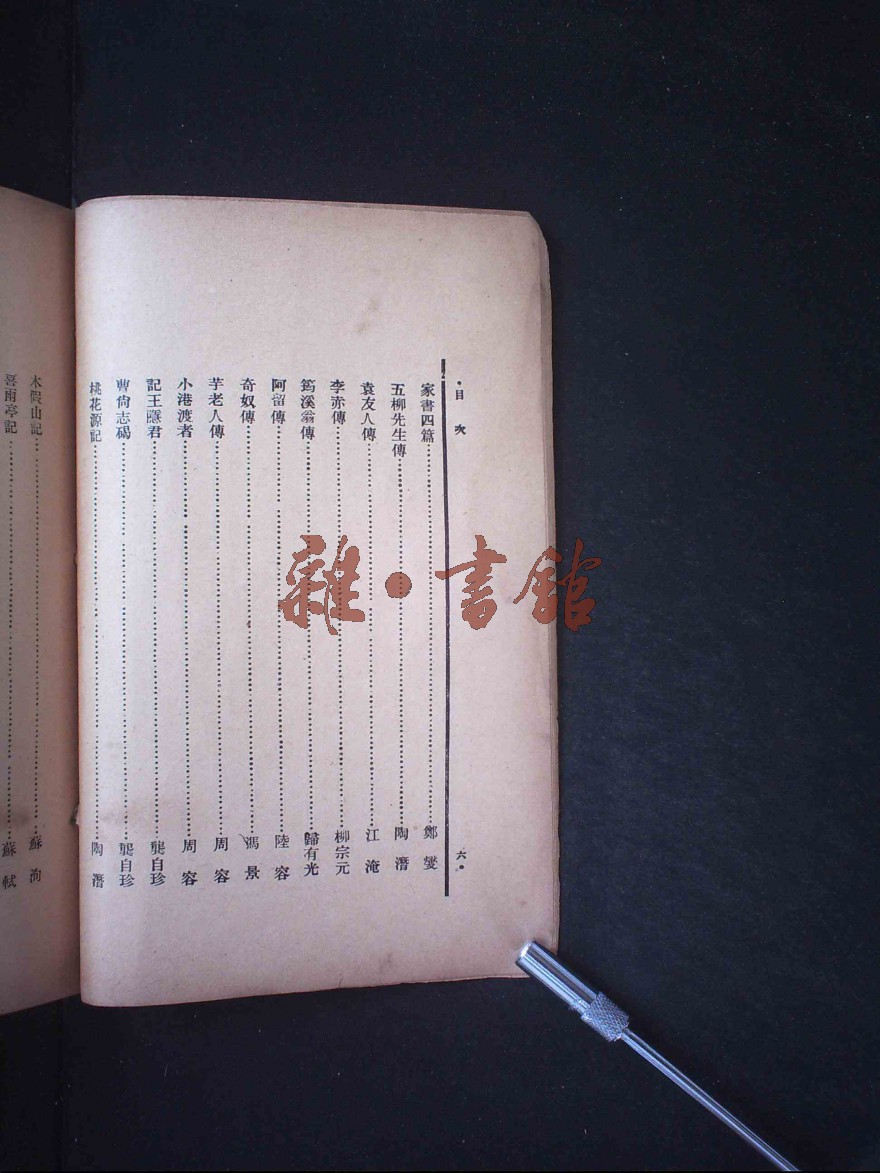 目次 六
家書四篇 鄭燮
五柳先生傳 陶潛
袁友人傳 江淹
李赤傳 柳宗元
筠溪翁傳 歸有光
阿留傳 陸容
奇奴傳 馮景
芋老人傳 周容
小港渡者 周容
記王隱君 龔自珍
曹尙志碣 龔自珍
桃花源記 陶潛
木假山記 蘇洵
喜雨亭記 蘇軾
雜·書館